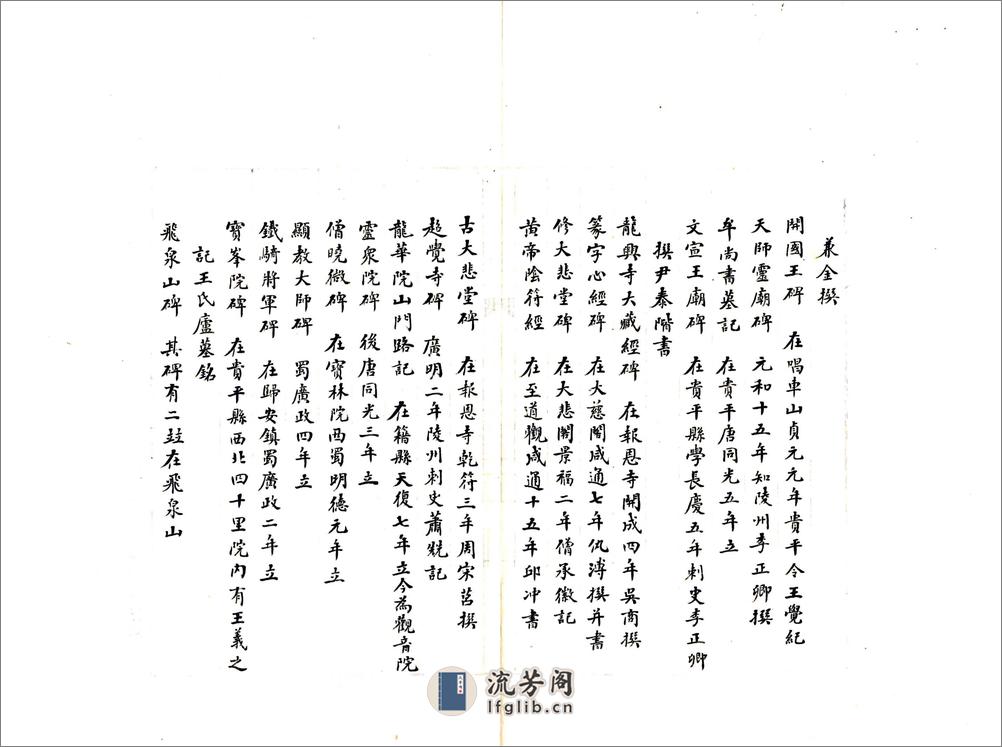 兼金撰
開國王碑　在唱車山貞元元年貴平令王覺紀
天師靈廟碑　元和十五年知陵州李正卿撰
牟尚書墓記　在貴平唐同光五年立
文宣王廟碑　在貴平縣學長慶五年刺史李正卿
撰尹泰階書
龍興寺大藏經碑　在報恩寺開成四年吳商撰
篆字心經碑　在大慈閣咸通七年仇溥撰并書
修大悲堂碑　在大悲閣景福二年僧承徽記
黃帝陰符經　在至道觀咸通十五年邱冲書
古大悲堂碑　在報恩寺乾符三年周宋莒撰
超覺寺碑　廣明二年陵州刺史蕭㲈記
龍華院山門路記　在籍縣天復七年立今為觀音院
靈眾院碑　後唐同光三年立
僧曉微碑　在寶林院西蜀明德元年立
顯教大師碑　蜀廣政四年立
鐵騎將軍碑　在歸安鎮蜀廣政二年立
寶峯院碑　在貴平縣西北四十里院內有王義之
記王氏廬墓銘
飛泉山碑　其碑有二竝在飛泉山
流芳阁
lfglib.cn